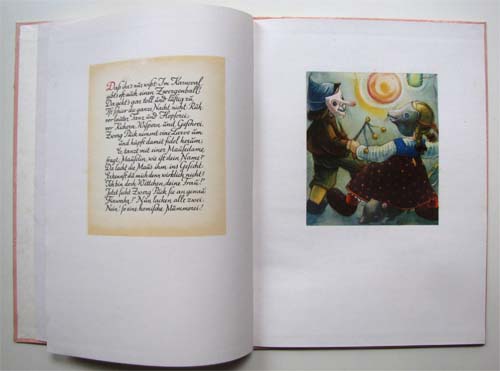 Daß ihr's nur wißt: Im Karneval
gibt's oft auch einen Zwergenball!
Da geht's gar toll und lustig zu,
Ist schier die ganze Nacht nicht Ruh
vor lauter Tanz und Hopserei,
vor Kichern, Wispern und Geschrei.
Zwerg Pück nimmt eine Larve um
und hüpft damit fidel herum;
Er tanzt mit einer Mausedame,
fragt: Mäuslein, wie ist dein Name?
Da lacht die Maus ihm ins Gesicht:
Erkennst du mich denn wirklich nicht?
Ich bin doch Wittchen, deine Frau!
Jetzt sieht Zwerg Pück sie an genau
Nun lachen alle zwei:
Nein! so eine komische Mummerei!